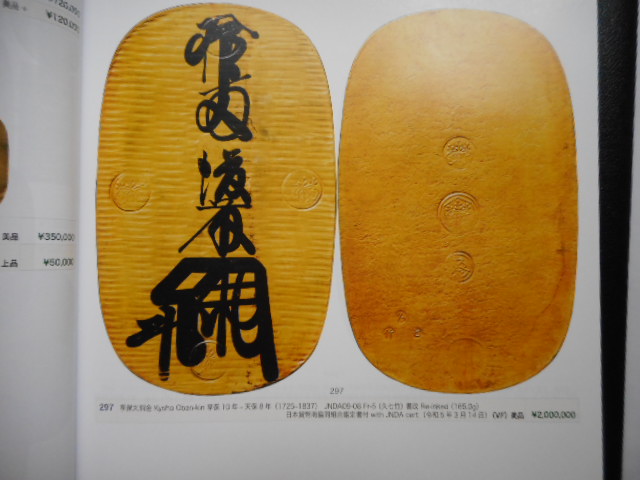 美品 ¥120,000
拾両後藤
297
美品 ¥350,000
上品 ¥50,000
297 享保大判金 Kyoho Oban-kin 享保10年-天保8年 (1725-1837) JNDA09-06 Fr-5 (久七竹) 書改 Re-inked (165.0g)
日本貨幣商協同組合鑑定書付 with JNDA cert. (令和5年3月14日) (VF) 美品 ¥2,000,000